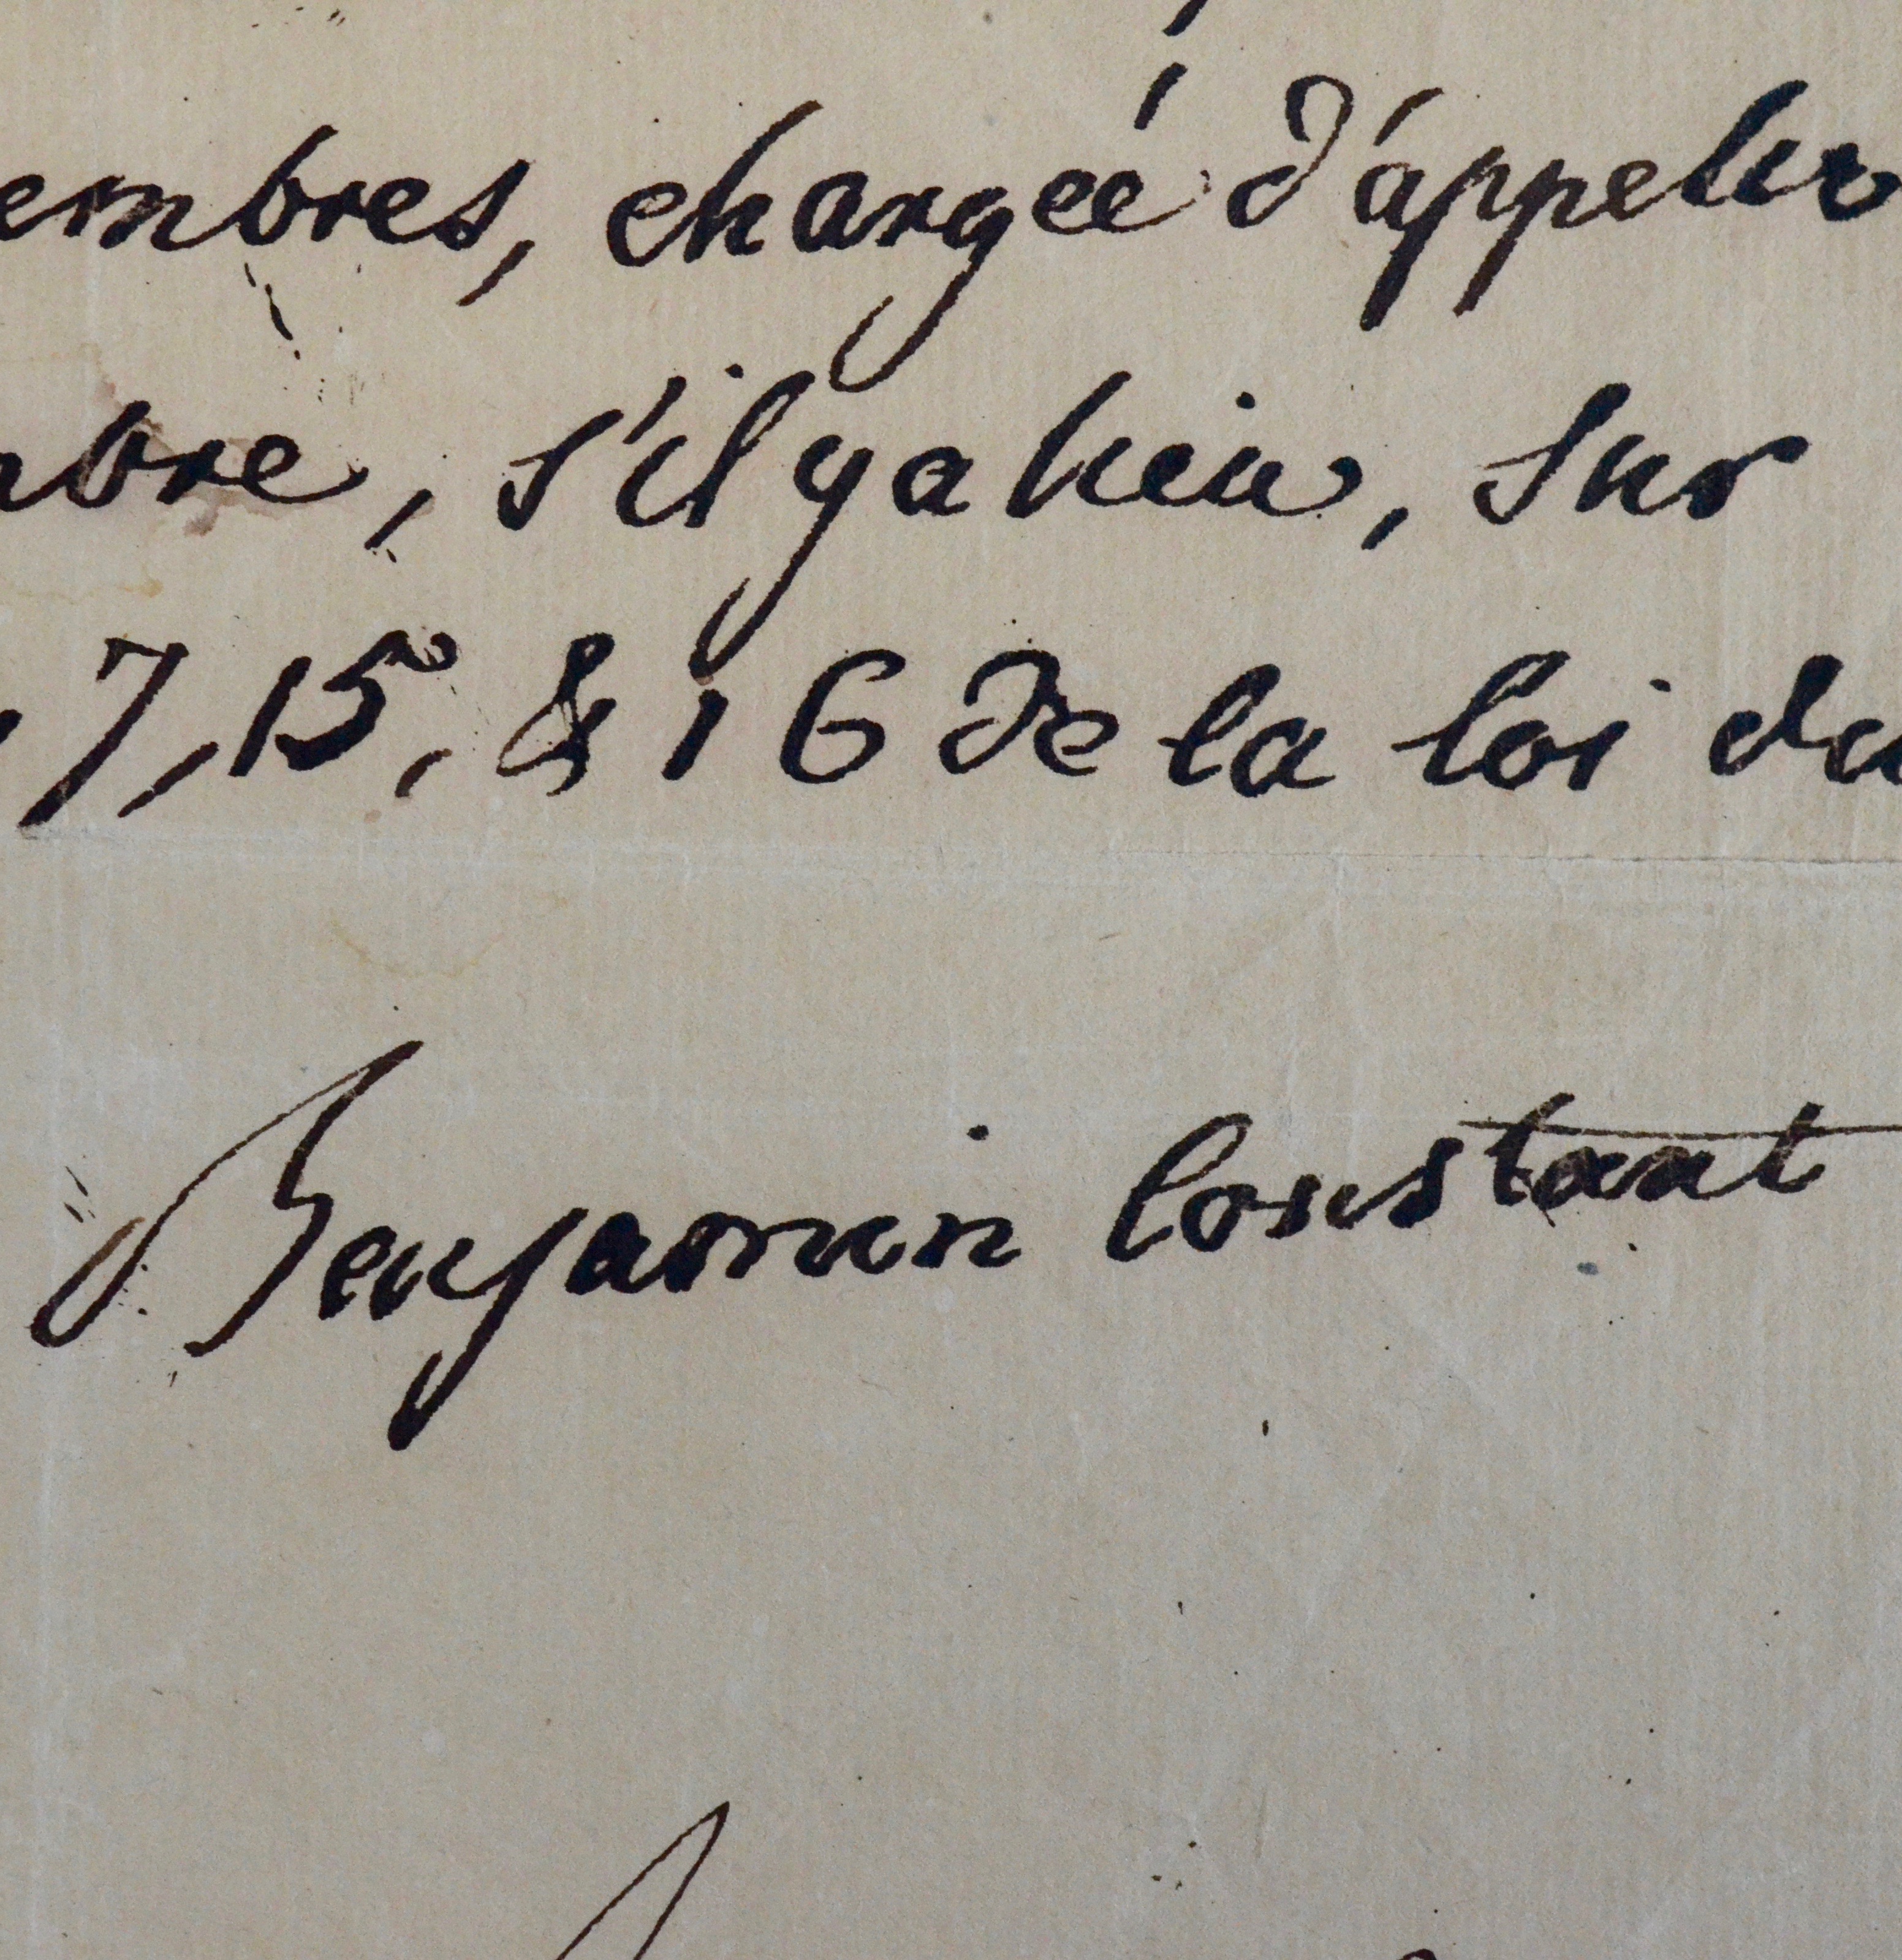 embres, chargeé d'appeler
mbre, s'il y a lieu, sur
7, 15, & 16 de la loi du
Benjamin Constant